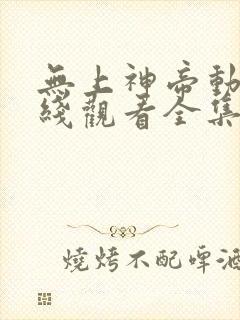 無上神帝動
綫觀看全集
燒烤不配啤酒